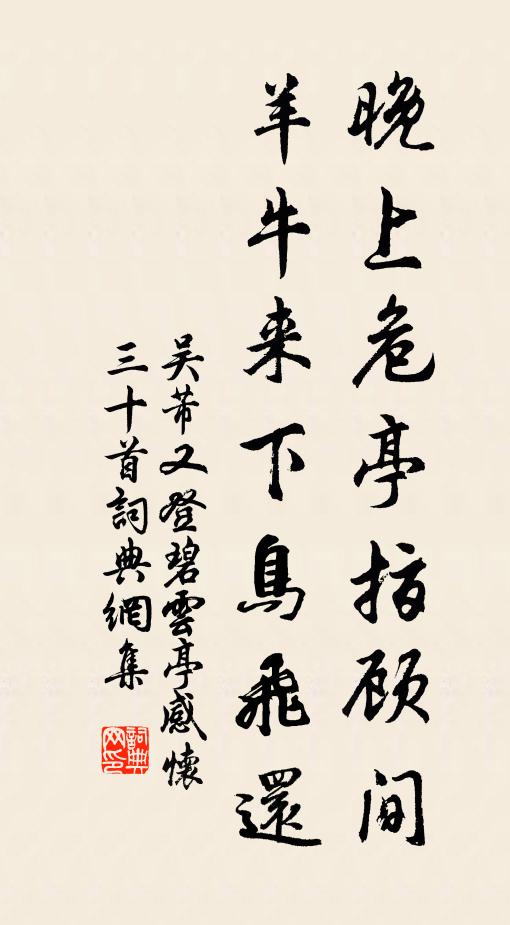 晚上危亭指顾间
羊牛来下鳥飛還
吴芾又登碧雲亭感懷
三十首詞典網集
詞典网印